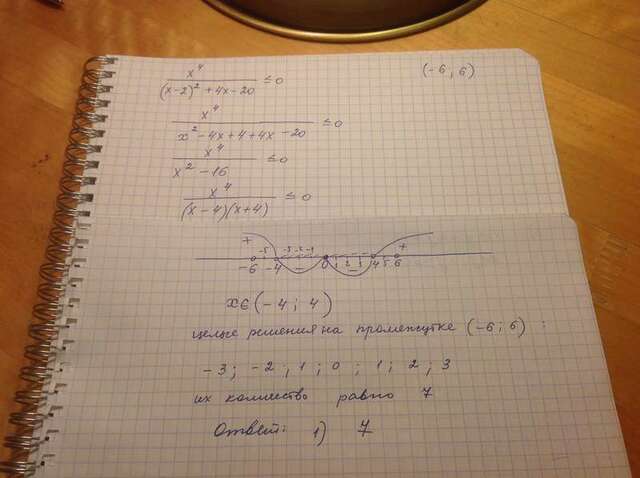 x⁴ / ((x-2)² + 4x - 20) ≤ 0 (-6; 6)
x⁴ / (x² - 4x + 4 + 4x - 20) ≤ 0
x⁴ / (x² - 16) ≤ 0
x⁴ / ((x-4)(x+4)) ≤ 0
+ -5 -3 -2 -1 1 2 3 +
-6 -4 - 0 - 4 5 6
x ∈ (-4; 4)
целые решения на промежутке (-6; 6) :
-3; -2; 1; 0; 1; 2; 3
их количество равно 7
Ответ: 1) 7